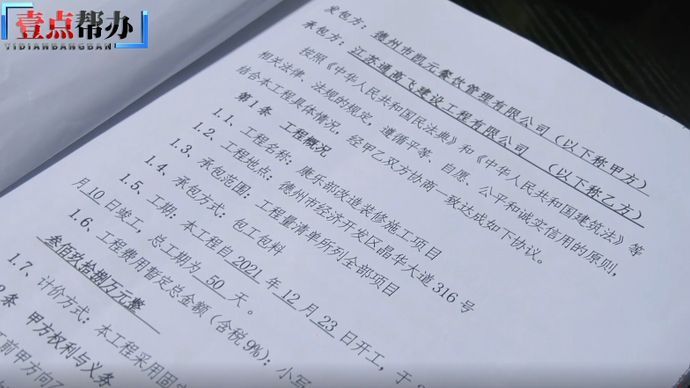 壹点帮办
YIDIANBANGBAN
发包方：德州市凯元餐饮管理有限公司（以下称甲方）
承包方：江苏通高飞建设工程有限公司（以下称乙方）
按照《中华人民共和国民法典》和《中华人民共和国建筑法》等
相关法律、法规的规定，遵循平等、自愿、公平和诚实信用的原则，
结合本工程具体情况，经甲乙双方协商一致达成如下协议。
第1条 工程概况
1.1、工程名称：康乐部改造装修施工项目
1.2、工程地点：德州市经济开发区晶华大道316号
1.3、承包范围：工程量清单所列全部项目
1.4、承包方式：包工包料
1.5、工期：本工程自2021年12月23日开工，于
月10日竣工，总工期为50天。
1.6、工程费用暂定总金额（含税9%）：小写
叁佰玖拾捌万元整
1.7、计价方式：本工程采用固
条 甲方权利与义务
前甲方向乙